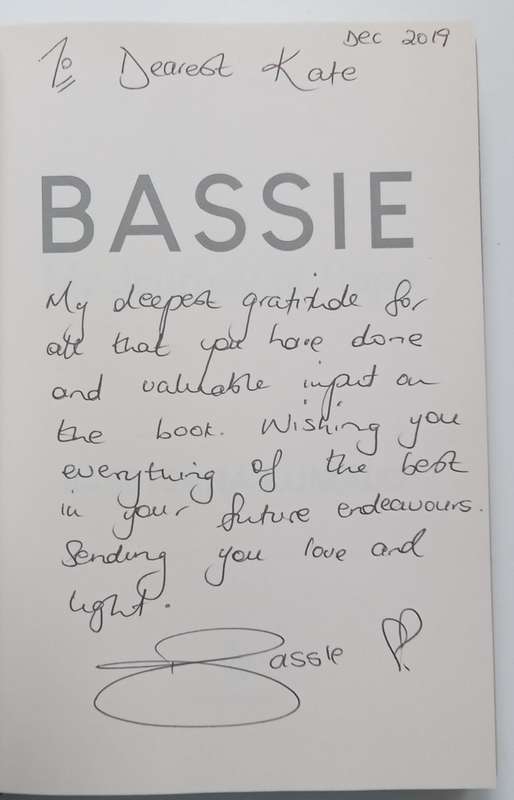 Dec 2019
To Dearest Kate
BASSIE
My deepest gratitude for
all that you have done
and valuable input on
the book. Wishing you
everything of the best
in your future endeavours.
Sending you love and
light.
Bassie